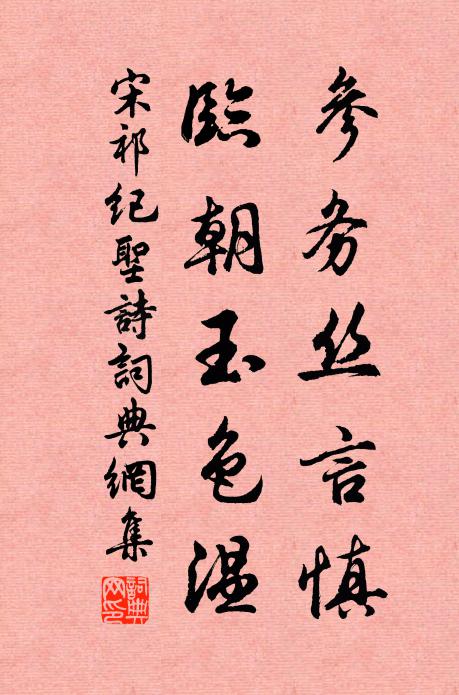 參务丝言慎
臨朝玉色温
宋祁纪聖詩詞典網集
詞典
网印